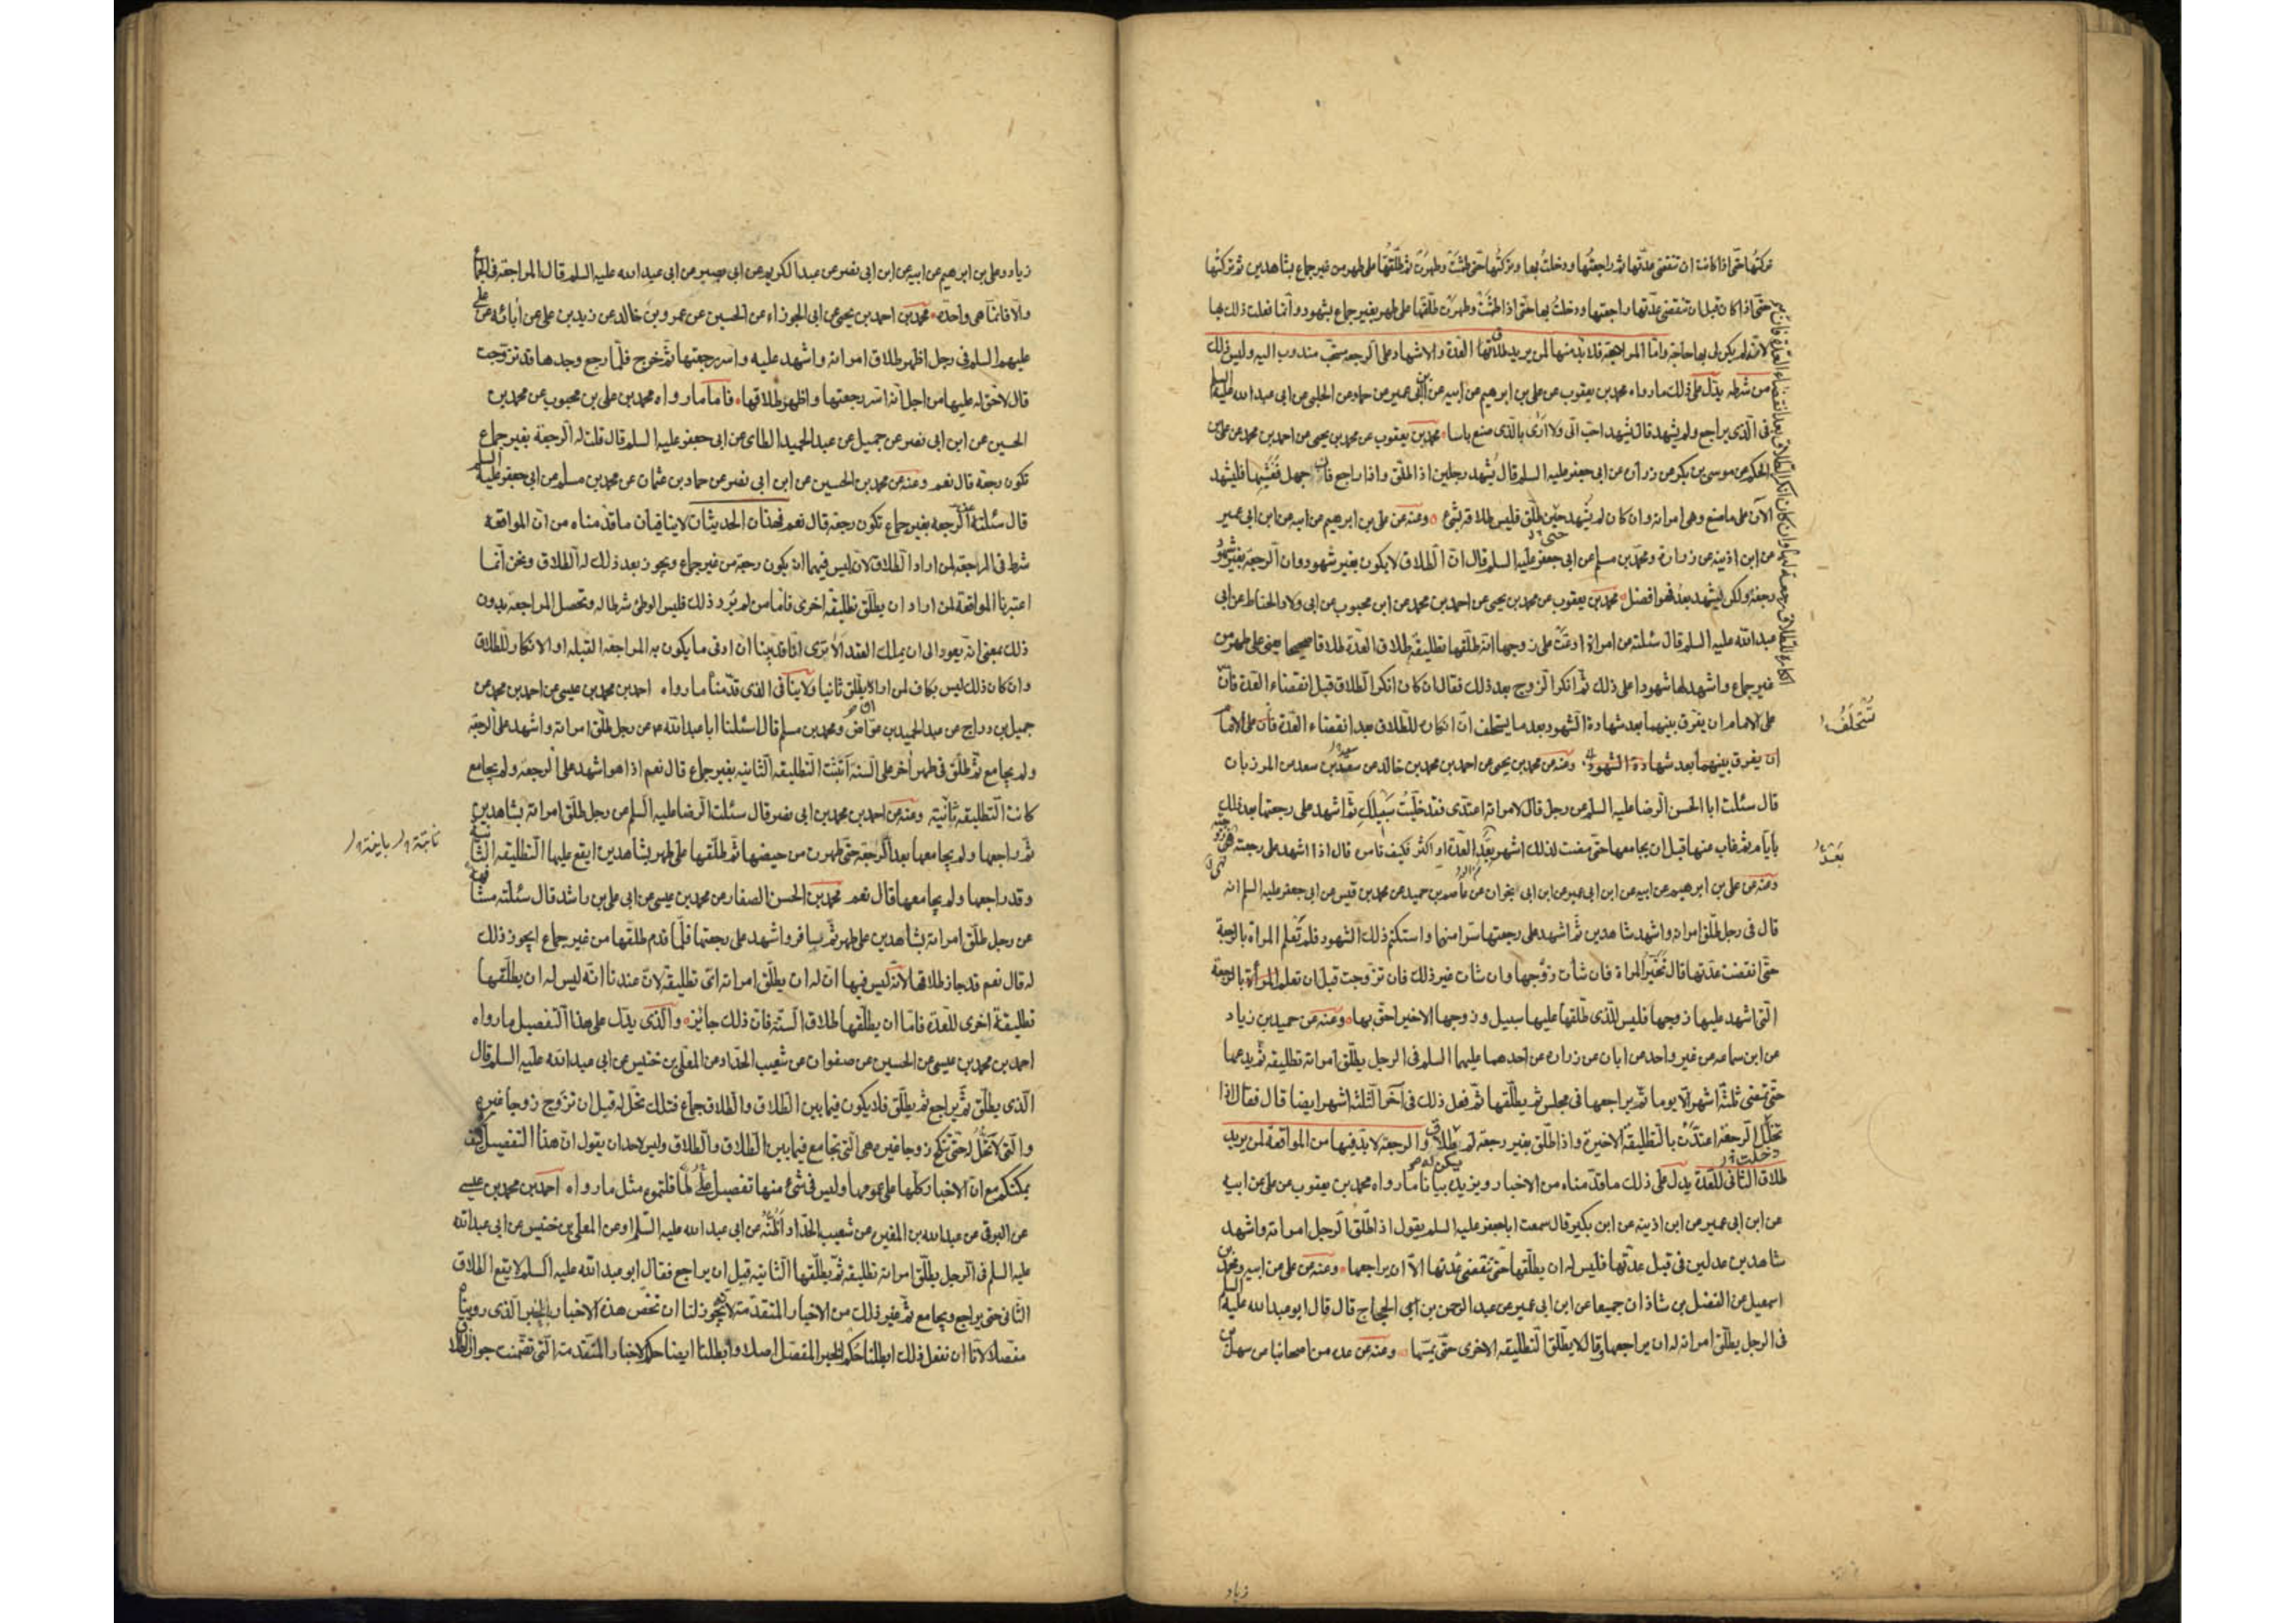 تركتها حتى اذا كانت ان تنقضى عدتها ثم راجعتها ودخلت بها وتركتها حتى طمثت وطهرت ثم طلقتها على طهر من غير جماع بشاهدين ثم تركتها
حتى اذا كان قبل ان تنقضى عدتها راجعتها ودخلت بها حتى اذا طمثت وطهرت طلقتها على طهر بغير جماع بشهود وانما فعلت ذلك بها
لانه لم يكن لى بها حاجة واما المراجعة فلا بد منها لمن يريد طلاقها العدة والاشهاد على الرجعة مستحب مندوب اليه وليس ذلك
من شرطه يدل على ذلك ما رواه محمد بن يعقوب عن على بن ابرهيم عن ابيه عن ابن ابى عمير عن حماد عن الحلبى عن ابى عبد الله عليه السلم
فى الذى يراجع ولم يشهد قال يشهد احب الى ولا ارى بالذى صنع باسا محمد بن يعقوب عن محمد بن يحيى عن احمد بن محمد عن على بن
الحكم عن موسى بن بكر عن زرارة عن ابى جعفر عليه السلم قال يشهد رجلين اذا طلق واذا راجع فان جهل فغشيها فليشهد
الآن على ما صنع وهى امراته وان كان لم يشهد حين طلق فليس طلاقه بشئ وعنه عن على بن ابرهيم عن ابيه عن ابن ابى عمير
عن ابن اذينه عن زرارة ومحمد بن مسلم عن ابى جعفر عليه السلم قال ان الطلاق لا يكون بغير شهود وان الرجعة بغير شهود
رجعة ولكن ليشهد بعد فهو افضل محمد بن يعقوب عن محمد بن يحيى عن احمد بن محمد عن ابن محبوب عن ابى ولاد الحناط عن ابى
عبد الله عليه السلم قال سئلته عن امراة ادعت على زوجها انه طلقها تطليقة طلاق العدة طلاقا صحيحا يعنى على طهر من
غير جماع واشهد لها شهودا على ذلك ثم انكر الزوج بعد ذلك فقال ان كان انكر الطلاق قبل انقضاء العدة فان
انكاره للطلاق رجعة لها وان كان انكر الطلاق بعد انقضاء العدة فان
على الامام ان يفرق بينهما بعد شهادة الشهود بعد ما يستحلف ان انكاره للطلاق بعد انقضاء العدة فان على الامام
تستحلف
ان يفرق بينهما بعد شهادة الشهود وعنه عن محمد بن يحيى عن احمد بن محمد بن خالد عن سعيد بن سعد عن المرزبان
قال سئلت ابا الحسن الرضا عليه السلم عن رجل قال لامراته اعتدى فقد خليت سبيلك ثم اشهد على رجعتها بعد ذلك
بايام ثم غاب عنها قبل ان يجامعها حتى مضت لذلك اشهر بعد العدة او اكثر فكيف تامر قال اذا اشهد على رجعته فهى زوجته
بعد
وعنه عن على بن ابرهيم عن ابيه عن ابن ابى عمير عن ابن ابى نجران عن عاصم بن حميد عن محمد بن قيس عن ابى جعفر عليه السلم انه
قال فى رجل طلق امراته واشهد شاهدين ثم اشهد على رجعتها سرا منها واستكتم ذلك الشهود فلم تعلم المراة بالرجعة
حتى انقضت عدتها قال تخير المراة فان شأت زوجها وان شأت غير ذلك فان تزوجت قبل ان تعلم المراة بالرجعة
التى اشهد عليها زوجها فليس للذى طلقها عليها سبيل وزوجها الاخير احق بها وعنه عن حميد بن زياد
عن ابن سماعه عن غير واحد عن ابان عن زرارة عن احدهما عليهما السلم فى الرجل يطلق امراته تطليقه ثم يدعها
حتى تمضى ثلثة اشهر الا يوما ثم يراجعها فى مجلس ثم يطلقها ثم فعل ذلك فى آخر الثلثة اشهر ايضا قال فقال اذا
تخلل الرجعة اعتدت بالتطليقة الاخيرة واذا طلق بغير رجعة لم يكن له طلاق والرجعة لا بد فيها من المواقعة لمن يريد
طلاق الثانى للعدة يدل على ذلك ما قدمناه من الاخبار ويزيده بيانا ما رواه محمد بن يعقوب عن على عن ابيه
عن ابن ابى عمير عن ابن اذينه عن ابن بكير قال سمعت ابا جعفر عليه السلم يقول اذا طلق الرجل امراته واشهد
شاهدين عدلين فى قبل عدتها فليس له ان يطلقها حتى تنقضى عدتها الا ان يراجعها وعنه عن على عن ابيه ومحمد بن
اسمعيل عن الفضل بن شاذان جميعا عن ابن ابى عمير عن عبد الرحمن بن الحجاج قال قال ابو عبد الله عليه السلم
فى الرجل يطلق امراته له ان يراجعها وقال لا يطلق التطليقه الاخرى حتى يمسها وعنه عن عدة من اصحابنا عن سهل بن
زياد
زياد وعلى بن ابرهيم عن ابيه عن ابن ابى نصر عن عبد الكريم عن ابى بصير عن ابى عبد الله عليه السلم قال المراجعة فى الجماع
والا فانما هى واحدة محمد بن احمد بن يحيى عن ابى الجوزاء عن الحسين عن عمرو بن خالد عن زيد بن على عن آبائه عن على
عليهم السلم فى رجل اظهر طلاق امراته واشهد عليه واسر رجعتها ثم خرج فلما رجع وجدها قد تزوجت
قال لا حق له عليها من اجل انه اسر رجعتها واظهر طلاقها فاما ما رواه محمد بن على بن محبوب عن محمد بن
الحسين عن ابن ابى نصر عن جميل عن عبد الحميد الطاى عن ابى جعفر عليه السلم قال قلت له الرجعة بغير جماع
تكون رجعة قال نعم وعنه عن محمد بن الحسين عن ابن ابى نصر عن حماد بن عثمان عن محمد بن مسلم عن ابى جعفر عليه السلم
قال سئلته عن الرجعة بغير جماع تكون رجعة قال نعم فهذان الحديثان لا ينافيان ما قدمناه من ان المواقعه
شرط فى المراجعة لمن اراد الطلاق لان ليس فيهما انه يكون رجعة من غير جماع ويجوز بعد ذلك له الطلاق ونحن انما
اعتبرنا المواقعة لمن اراد ان يطلق تطليقة اخرى فاما من لم يرد ذلك فليس الوطئ شرطا له وتحصل المراجعة بدون
ذلك بمعنى انه يعود الى ان يملك العقد الا ترى انا قد بينا ان ادنى ما يكون به المراجعة القبلة او الانكار للطلاق
وان كان ذلك ليس بكاف لمن اراد ان يطلق ثانيا ولا ينافى الذى قدمنا ما رواه احمد بن محمد بن عيسى عن احمد بن محمد عن
جميل بن دراج عن عبد الحميد بن عواض ومحمد بن مسلم قال سئلنا ابا عبد الله ع عن رجل طلق امراته واشهد على الرجعة
ولم يجامع ثم طلق فى طهر آخر على السنة اتثبت التطليقه الثانيه بغير جماع قال نعم اذا هو اشهد على الرجعة ولم يجامع
كانت التطليقه ثانية وعنه عن احمد بن محمد بن ابى نصر قال سئلت الرضا عليه السلم عن رجل طلق امراته بشاهدين
ثم راجعها ولم يجامعها بعد الرجعة حتى طهرت من حيضها ثم طلقها على طهر بشاهدين ايقع عليها التطليقه الثانية
وقد راجعها ولم يجامعها قال نعم محمد بن الحسن الصفار عن محمد بن عيسى عن ابى على بن راشد قال سئلته مشافهة
عن رجل طلق امراته بشاهدين على طهر ثم سافر واشهد على رجعتها فلما قدم طلقها من غير جماع ايجوز ذلك
له قال نعم قد جاز طلاقها لانه ليس فيها ان له ان يطلق امراته اى تطليقة لان عندنا انه ليس له ان يطلقها
تطليقة اخرى للعدة فاما ان يطلقها طلاق السنة فان ذلك جائز والذى يدل على هذا التفصيل ما رواه
احمد بن محمد بن عيسى عن الحسين عن صفوان عن شعيب الحداد عن المعلى بن خنيس عن ابى عبد الله عليه السلم قال
الذى يطلق ثم يراجع ثم يطلق فلا يكون فيما بين الطلاق والطلاق جماع فتلك تحل له قبل ان تزوج زوجا غيره
والتى لا تحل له حتى تنكح زوجا غيره هى التى تجامع فيما بين الطلاق والطلاق وليس لاحد ان يقول ان هذا التفصيل كيف
يمكنكم مع ان الاخبار كلها على عمومها وليس فى شئ منها تفصيل ما قلتموه مثل ما رواه احمد بن محمد بن عيسى
عن البرقى عن عبد الله بن المغيرة عن شعيب الحداد اظنه عن ابى عبد الله عليه السلم او عن المعلى بن خنيس عن ابى عبد الله
عليه السلم فى الرجل يطلق امراته تطليقه ثم يطلقها الثانيه قبل ان يراجع فقال ابو عبد الله عليه السلم لا يقع الطلاق
الثانى حتى يراجع ويجامع ثم غير ذلك من الاخبار المتقدمة لانه يجوز لنا ان نخص هذه الاخبار بالخبر الذى رويناه
مفصلا لانا ان نفعل ذلك ابطلنا حكم الخبر المفصل اصلا وابطلنا ايضا حكم الاخبار المتقدمة التى تضمنت جواز الطلاق